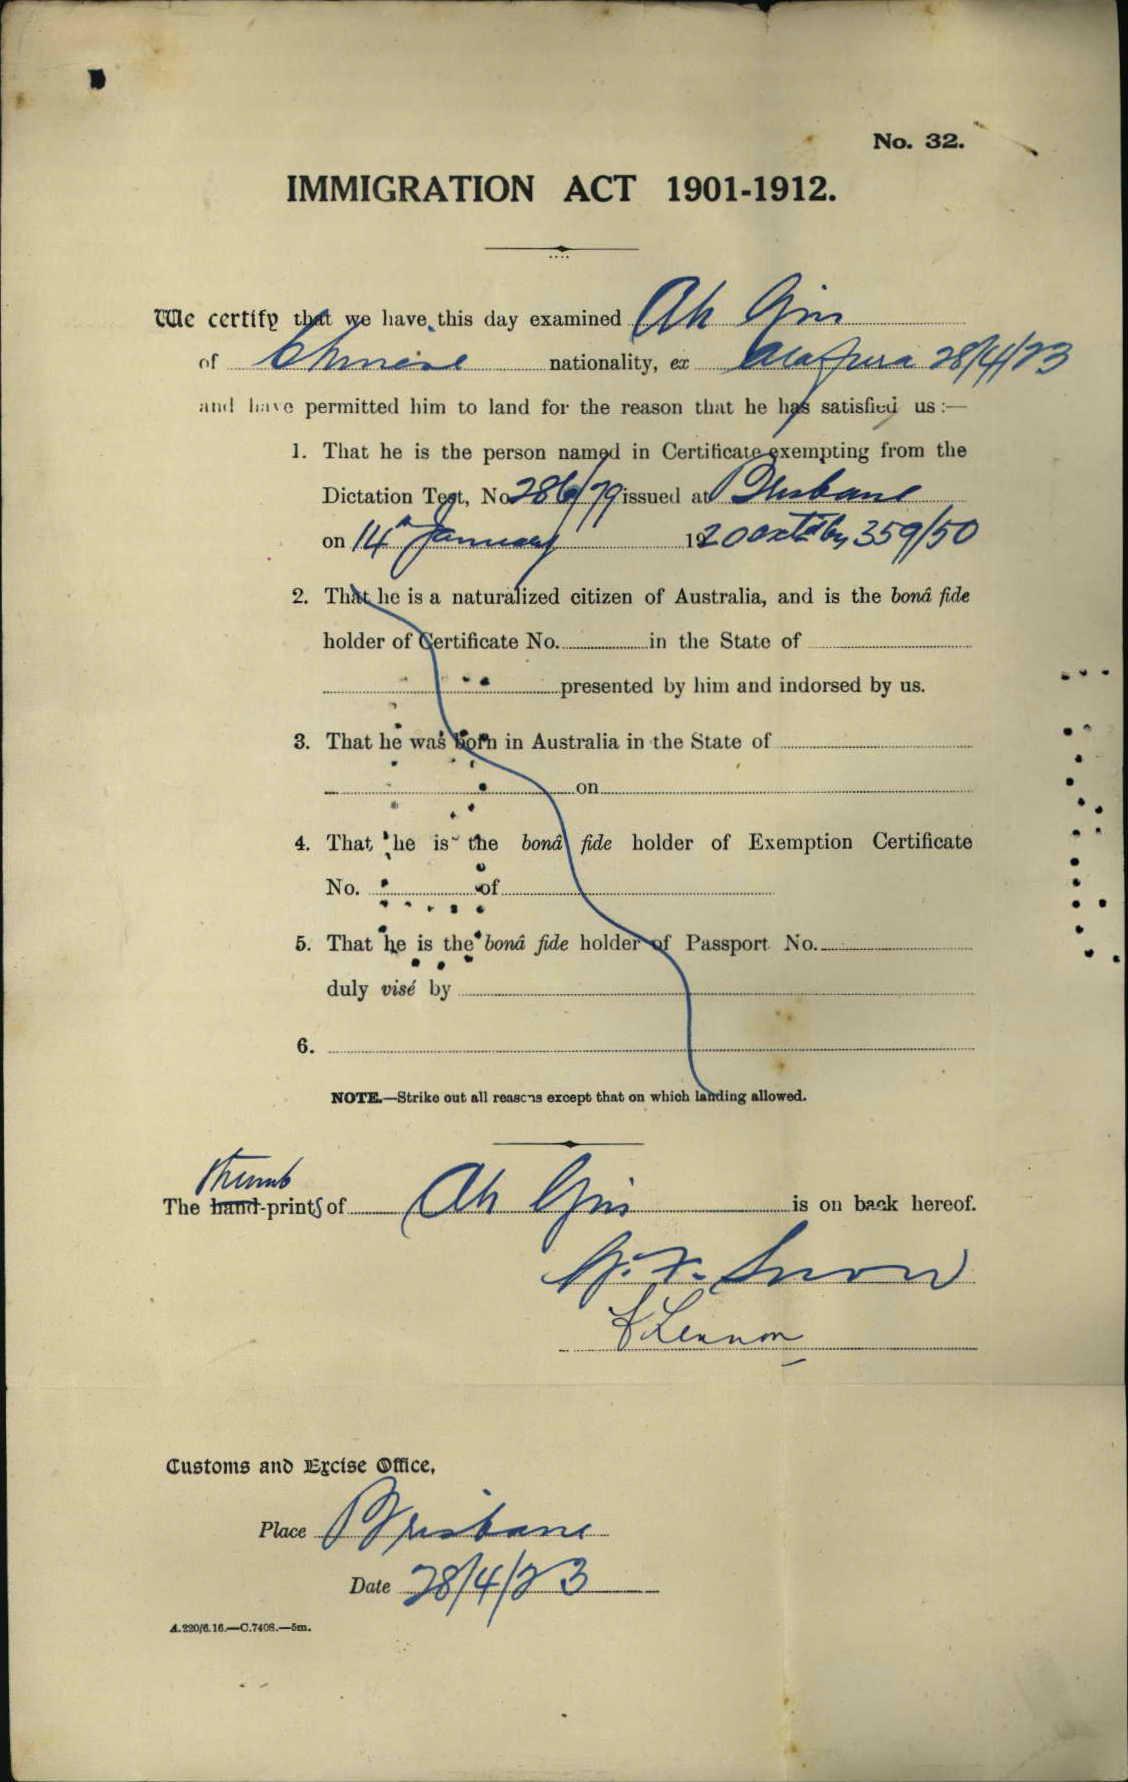 No. 32.
IMMIGRATION ACT 1901-1912.
We certify that we have this day examined Ah Gin
of Chinese nationality, ex Arafura 28/4/23
and have permitted him to land for the reason that he has satisfied us :—
1. That he is the person named in Certificate exempting from the
Dictation Test, No 286/79 issued at Brisbane
on 14th January 1920 extd by 359/50
2. That he is a naturalized citizen of Australia, and is the bonâ fide
holder of Certificate No. in the State of
presented by him and indorsed by us.
3. That he was born in Australia in the State of
on
4. That he is the bonâ fide holder of Exemption Certificate
No. of
5. That he is the bonâ fide holder of Passport No.
duly visé by
6.
NOTE.—Strike out all reasons except that on which landing allowed.
thumb
The hand-prints of Ah Gin is on back hereof.
Snow
Lennon
Customs and Excise Office,
Place Brisbane
Date 28/4/23
A.220/6.16.—C.7408.—5m.